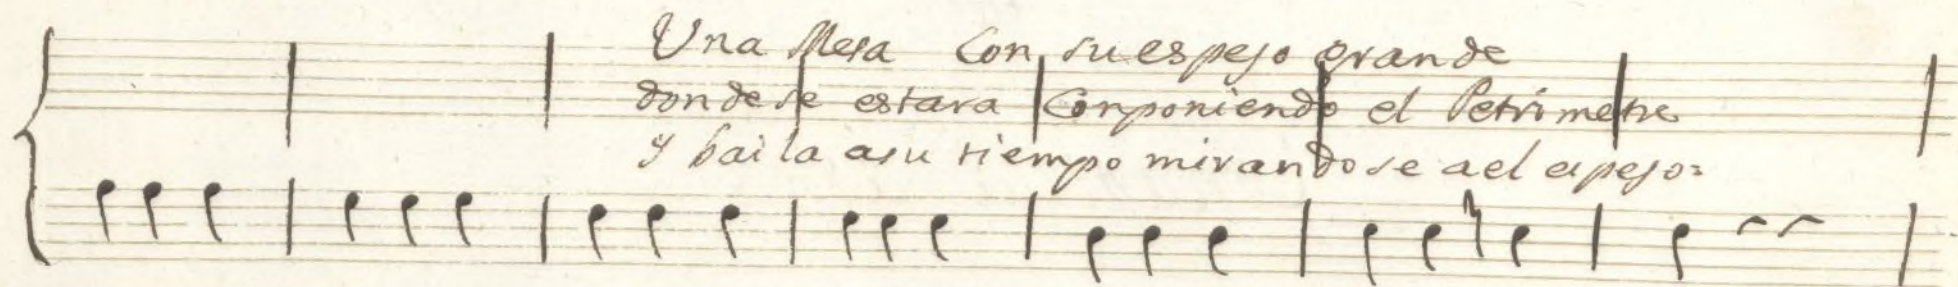 Una Mesa Con su espejo grande
donde se estara Componiendo el Petrimetre
y baila asu tiempo mirandose ael espejo=